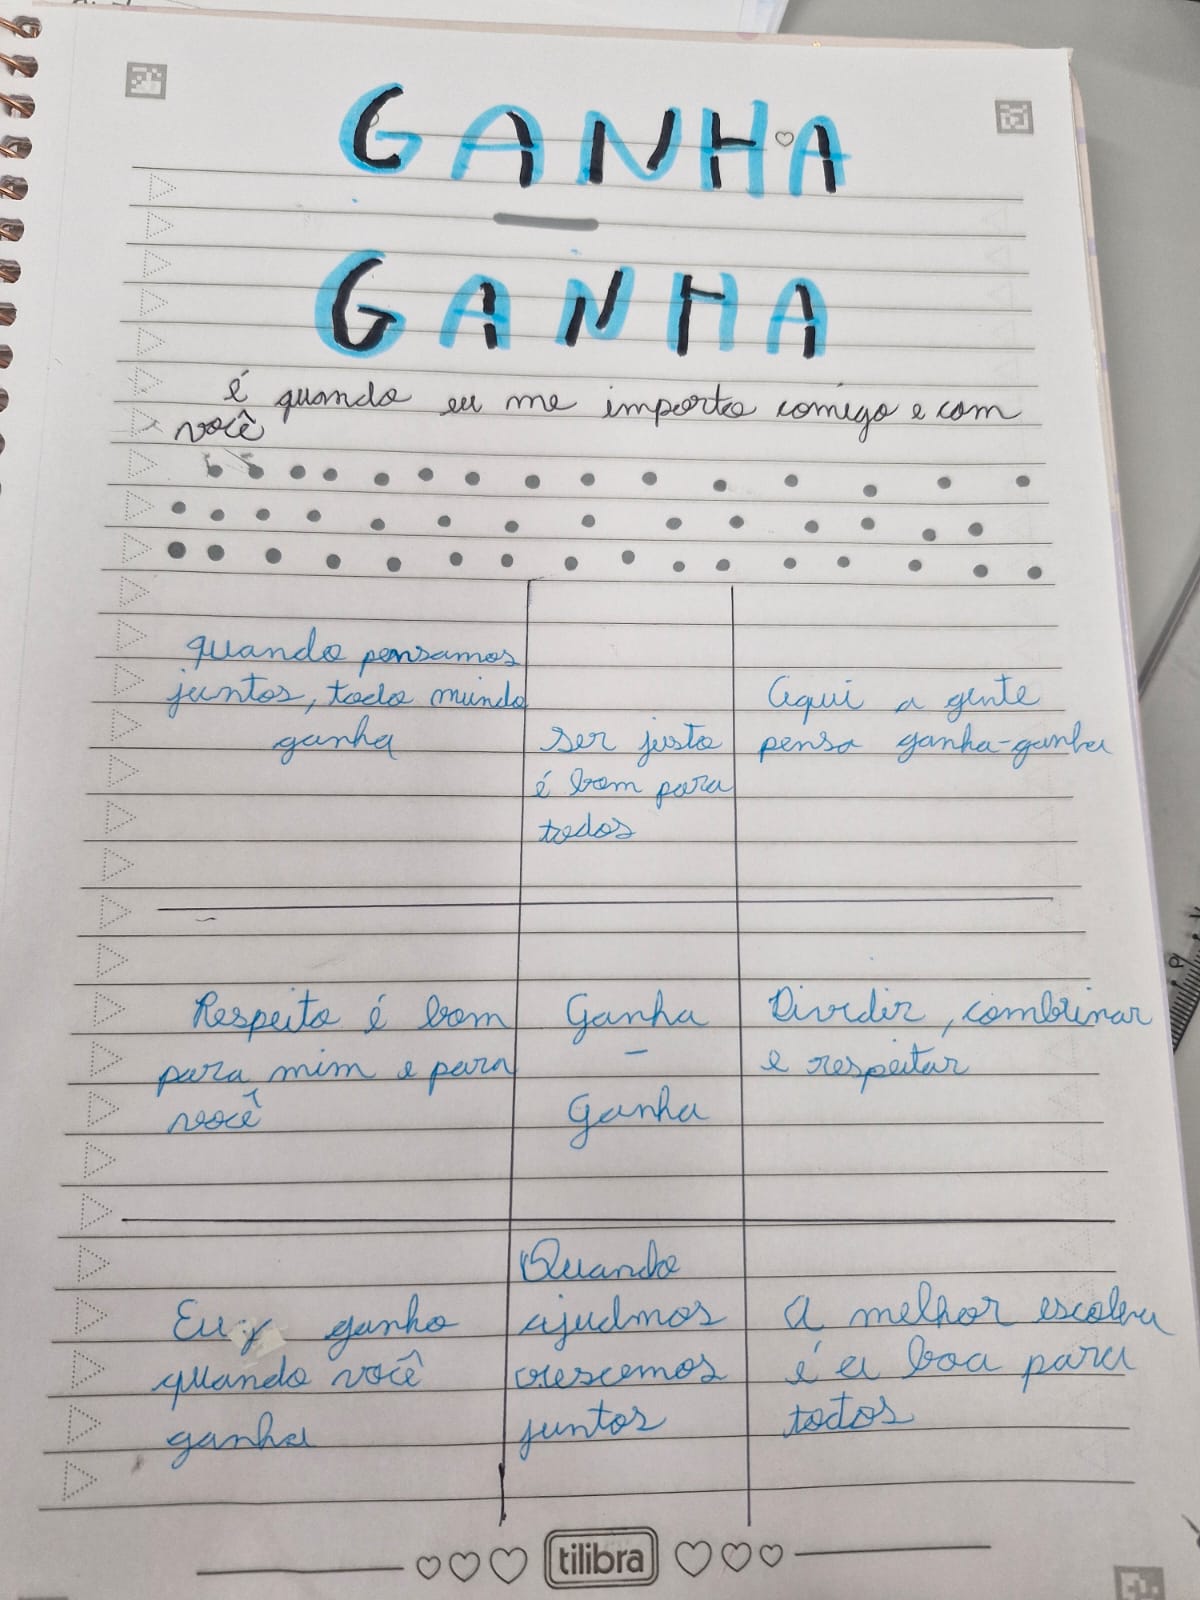 GANHA
-
GANHA
é quando eu me importo comigo e com
você
quando pensamos
juntos, todo mundo
ganha
ser justo
é bom para
todos
Aqui a gente
pensa ganha-ganha
Respeito é bom
para mim e para
você
Ganha
-
Ganha
Dividir, combinar
e respeitar
Eu ganho
quando você
ganha
Quando
ajudmos
crescemos
juntos
A melhor escolha
é a boa para
todos
tilibra